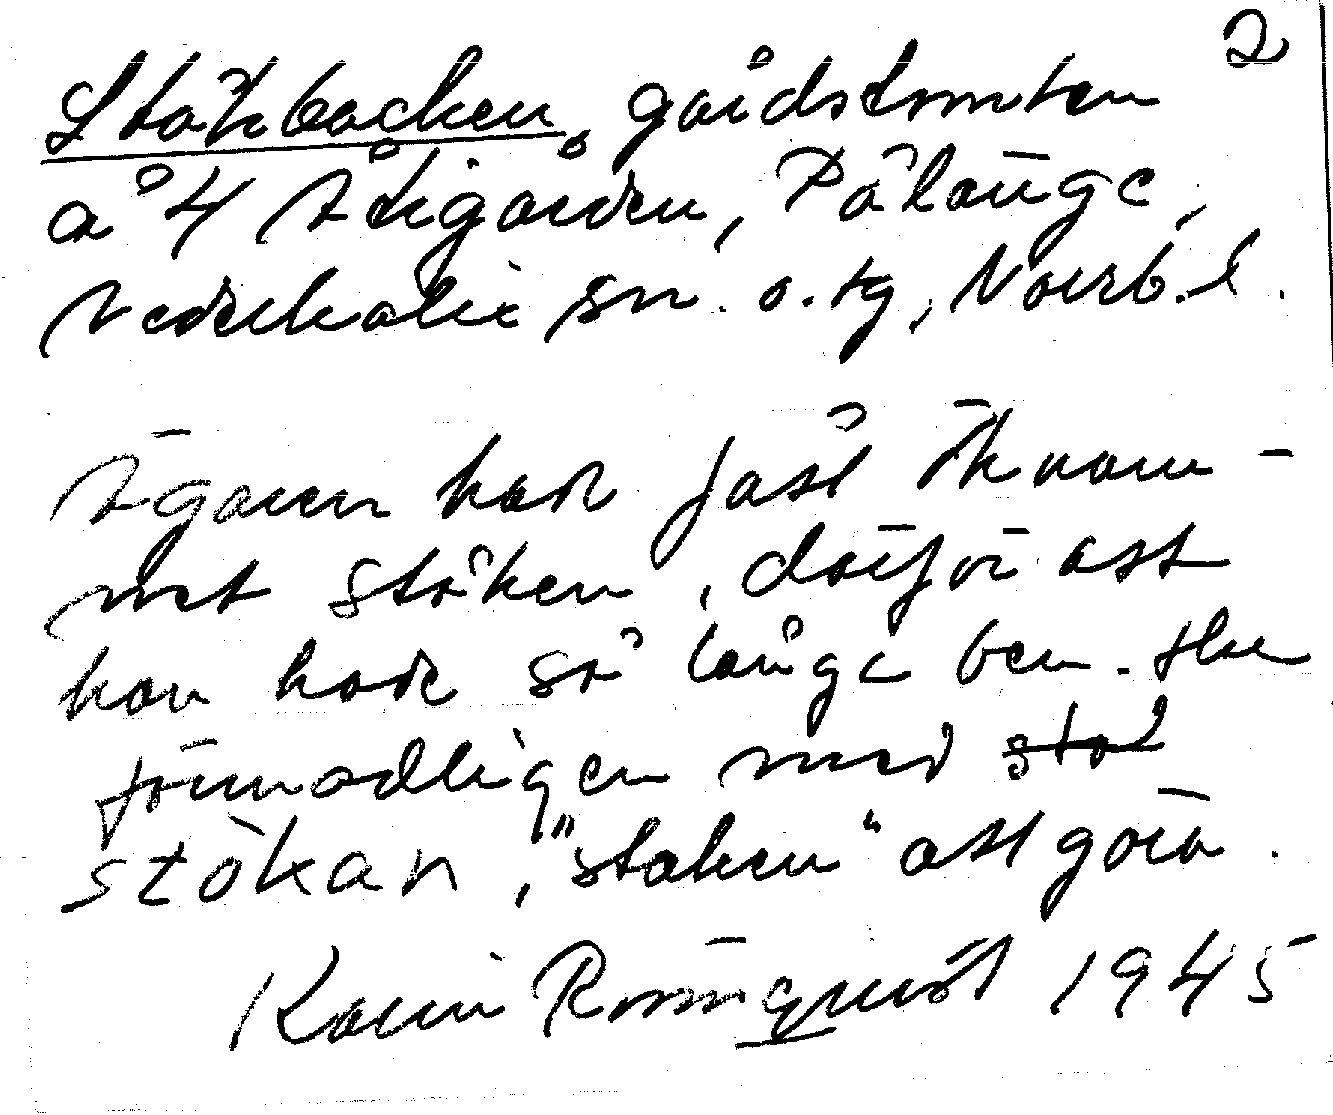 2
Ståkbacken, gårdstomten
å 4 Åtigården, Pålänge,
Nederkalix sn. o. tg, Norrb. l.
Ägaren hade fått öknam-
net ståken, därför att
han hade så långa ben. Har
förmodligen med stå
stökan, "staken" att göra.
Karin Rönnquist 1945